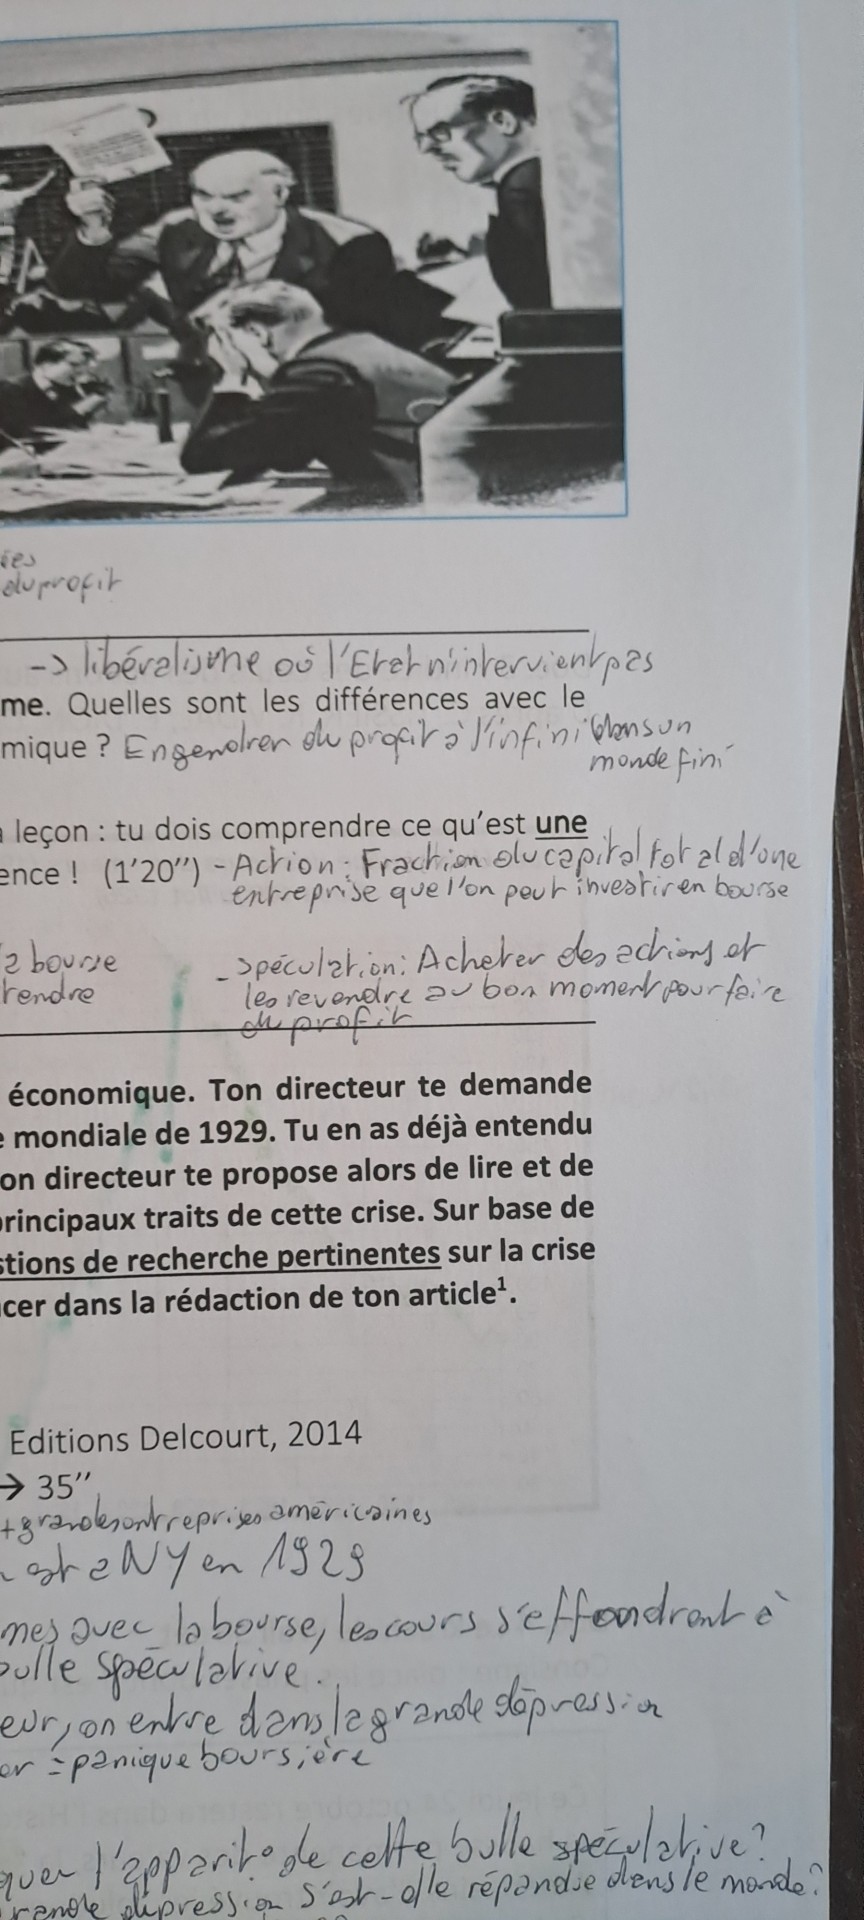 ies
du profit
-> libéralisme où l'Etat n'intervient pas
me. Quelles sont les différences avec le
mique ? Engendrer du profit à l'infini dans un
monde fini
leçon : tu dois comprendre ce qu'est une
ence ! (1'20'') - Action : Fraction du capital total d'une
entreprise que l'on peut investir en bourse
a bourse - spéculation : Acheter des actions et
rendre les revendre au bon moment pour faire
du profit
économique. Ton directeur te demande
e mondiale de 1929. Tu en as déjà entendu
on directeur te propose alors de lire et de
rincipaux traits de cette crise. Sur base de
stions de recherche pertinentes sur la crise
cer dans la rédaction de ton article¹.
Editions Delcourt, 2014
→ 35''
+ grandes entreprises américaines
est à NY en 1929
mes avec la bourse, les cours s'effondrent à
bulle spéculative.
eur, on entre dans la grande dépression
er = panique boursière
quer l'apparit° de cette bulle spéculative ?
rande dépression s'est-elle répandue dans le monde ?